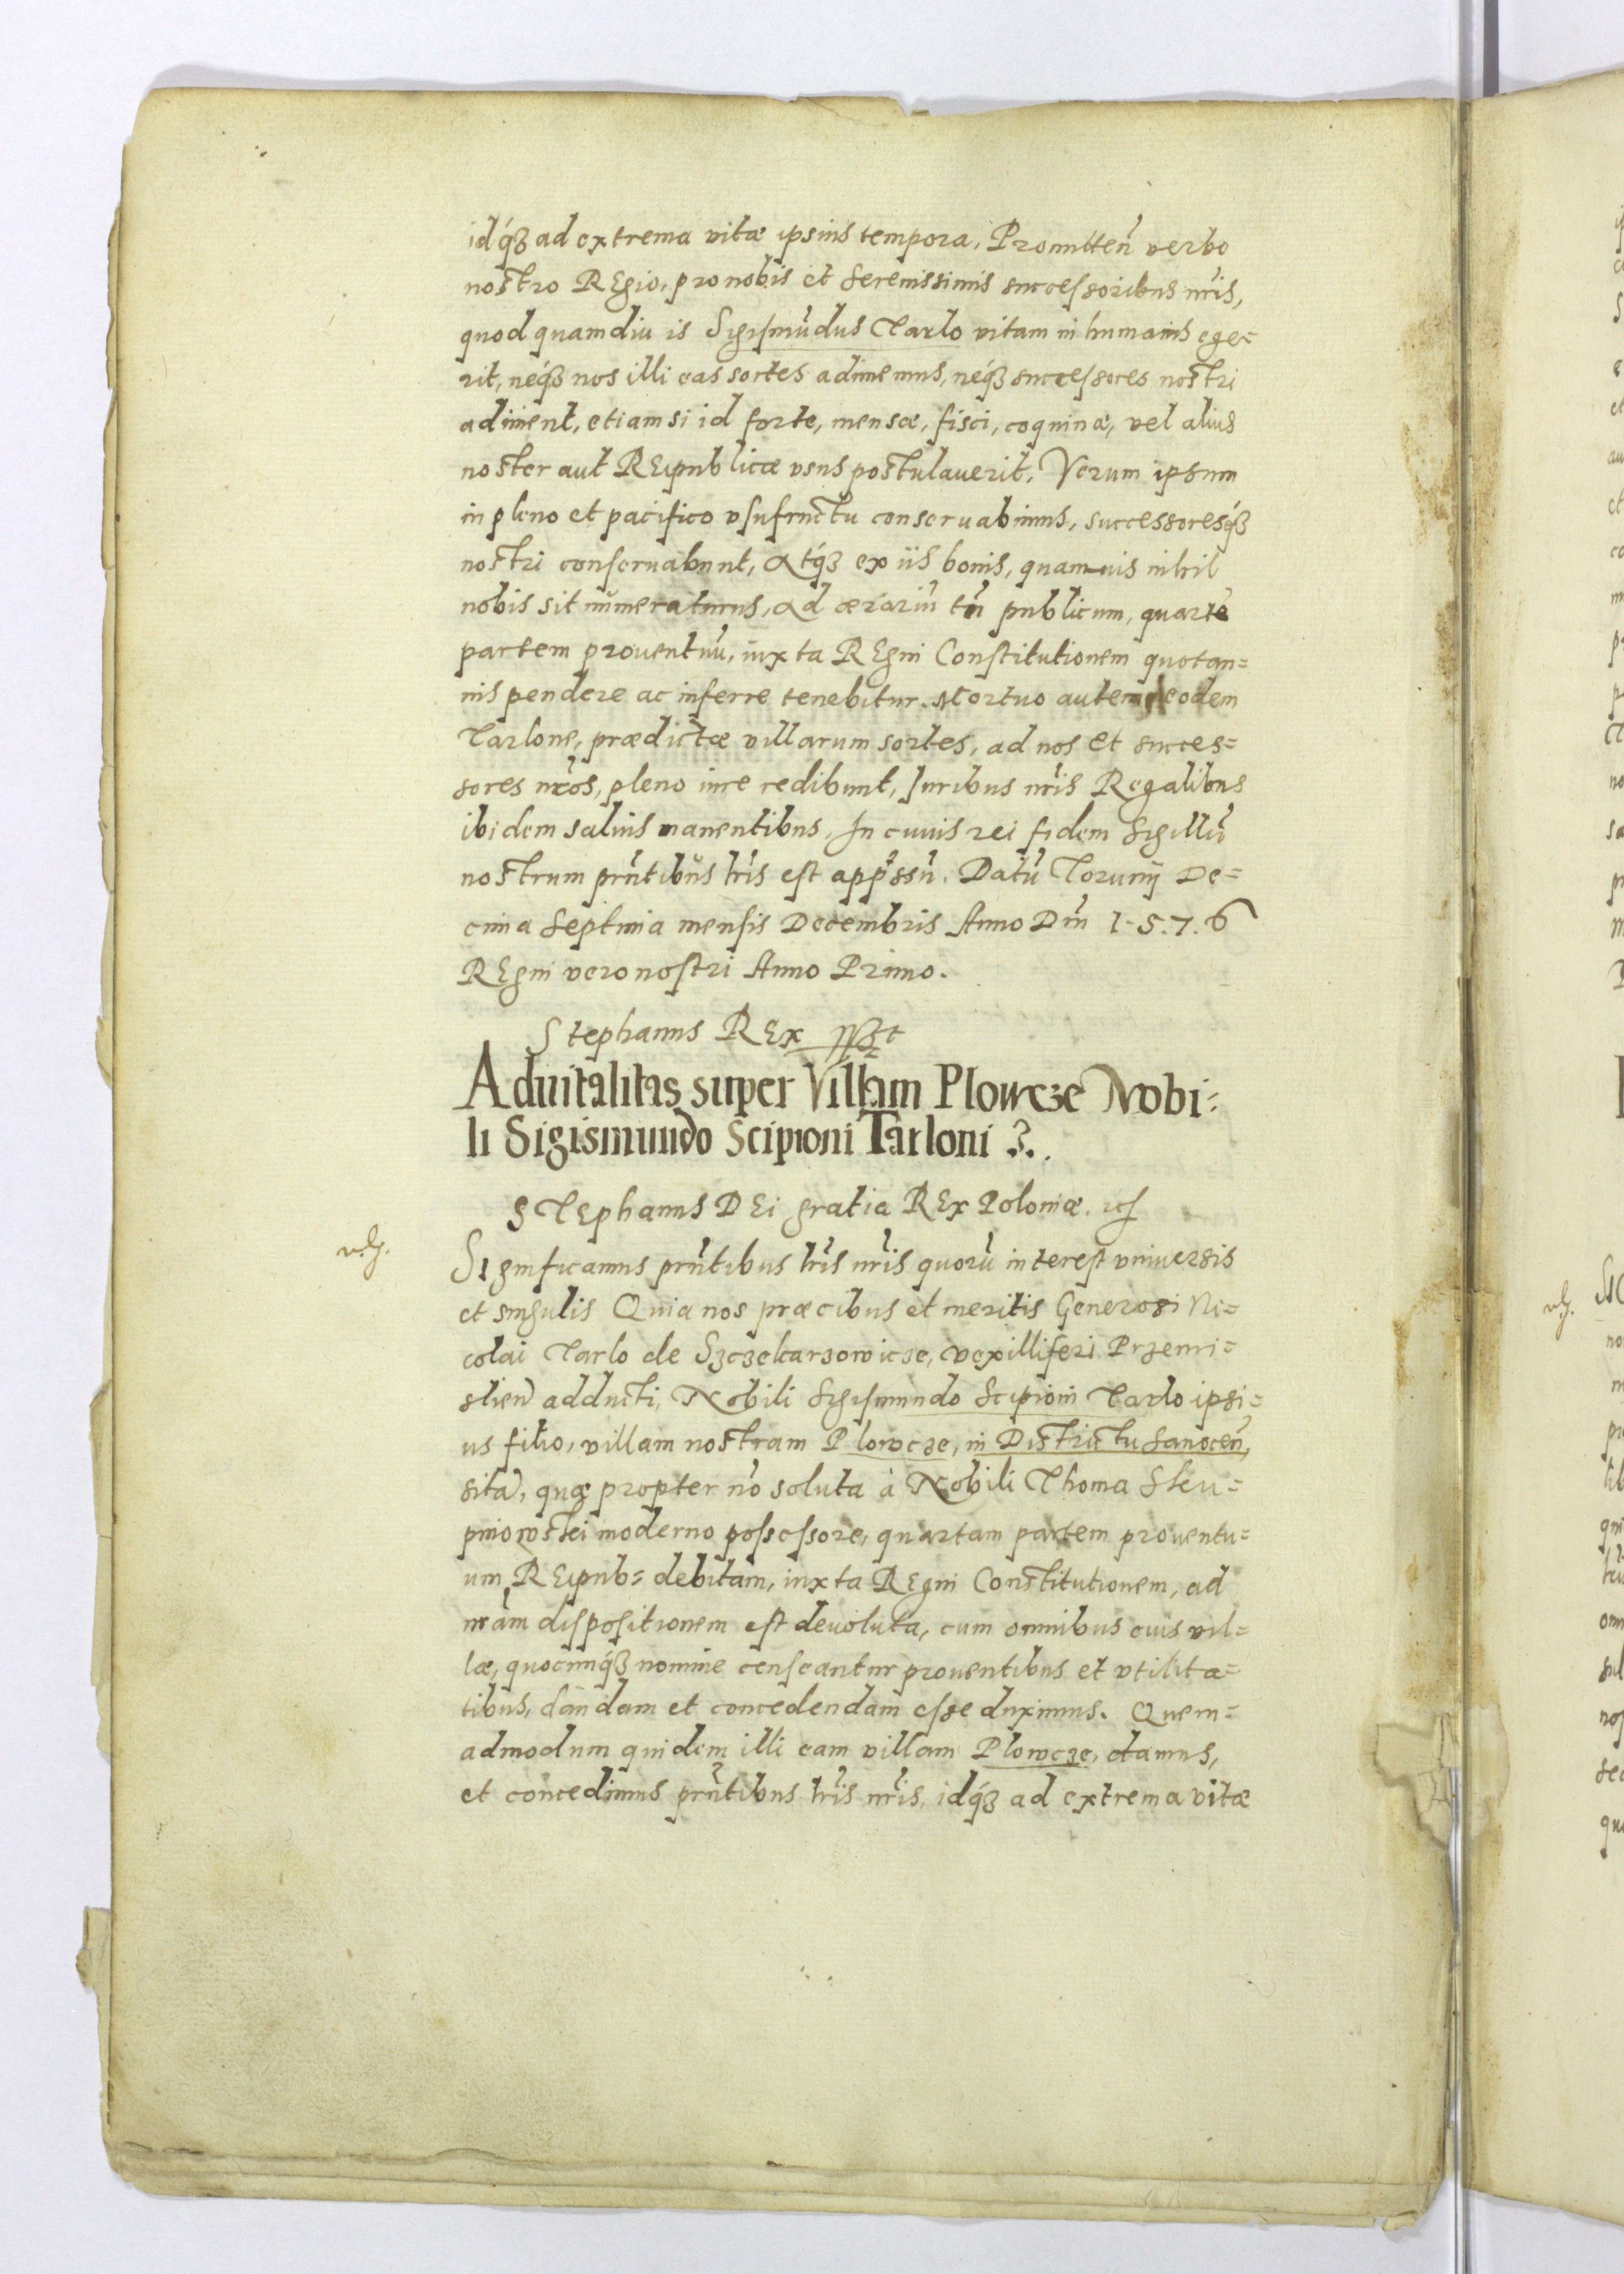 idq́ȝ ad extrema vitæ ipsius tempora, Promitteñ verbo
nostro REgio, pro nobis et Serenissimis successoribus nr̃is,
quod quamdiu is Sigismũdus Tarlo vitam in humanis ege=
rit, neq́ȝ nos illi eas sortes adimemus, neq́ȝ successores nostri
adiment, etiamsi id forte, mensæ, fisci, coquinæ, vel alius
noster aut REipublicæ vsus postulauerit, Verum ipsum
in pleno et pacifico vsufructu conseruabimus, successoresq́ȝ
nostri conseruabunt, Atq́ȝ ex iis bonis, quamuis nihil
nobis sit numeraturus, ad ærariũ tñ publicum, quartã
partem prouentuũ, iuxta REgni Constitutionem quotan=
nis pendere ac inferre tenebitur. Mortuo autem eodem
Tarlone, prædictæ villarum sortes, ad nos et succes=
sores nr̃os, pleno iure redibunt, Juribus nr̃is Regalibus
ibidem saluis manentibus, In cuius rei fidem Sigillũ
nostrum prñtibus lr̃is est appʳssũ. Datũ Torunij De=
cima Septima mensis Decembris Anno Dñi 1.5.7.6
REgni vero nostri Anno Primo.
Stephanus REx
Aduitalitas super Villam Plowcze Nobi=
li Sigismundo Scipioni Tarloni
STEphanus DEi gratia REx Poloniæ.
Significamus prñtibus lr̃is nr̃is quorũ interest vniuersis
et singulis Quia nos præcibus et meritis Generosi Ni=
colai Tarlo de Szczekarzowicze, vexilliferi Przemi=
slien̄ adducti, Nobili Sigismundo Scipioni Tarlo ipsi=
us filio, villam nostram Plowcze, in Districtu Sanoceñ,
sitã, quę propter nõ soluta à Nobili Thoma Sku=
pniowski moderno possessore, quartam partem prouentu=
um REipub= debitam, iuxta REgni Constitutionem, ad
nr̃am dispositionem est deuoluta, cum omnibus eius vil=
læ, quocunq́ȝ nomine censeantur prouentibus et vtilita=
tibus, dandam et concedendam esse duximus. Quem=
admodum quidem illi eam villam Plowcze, damus,
et concedimus prñtibus lr̃is nr̃is, idq́ȝ ad extrema vitæ